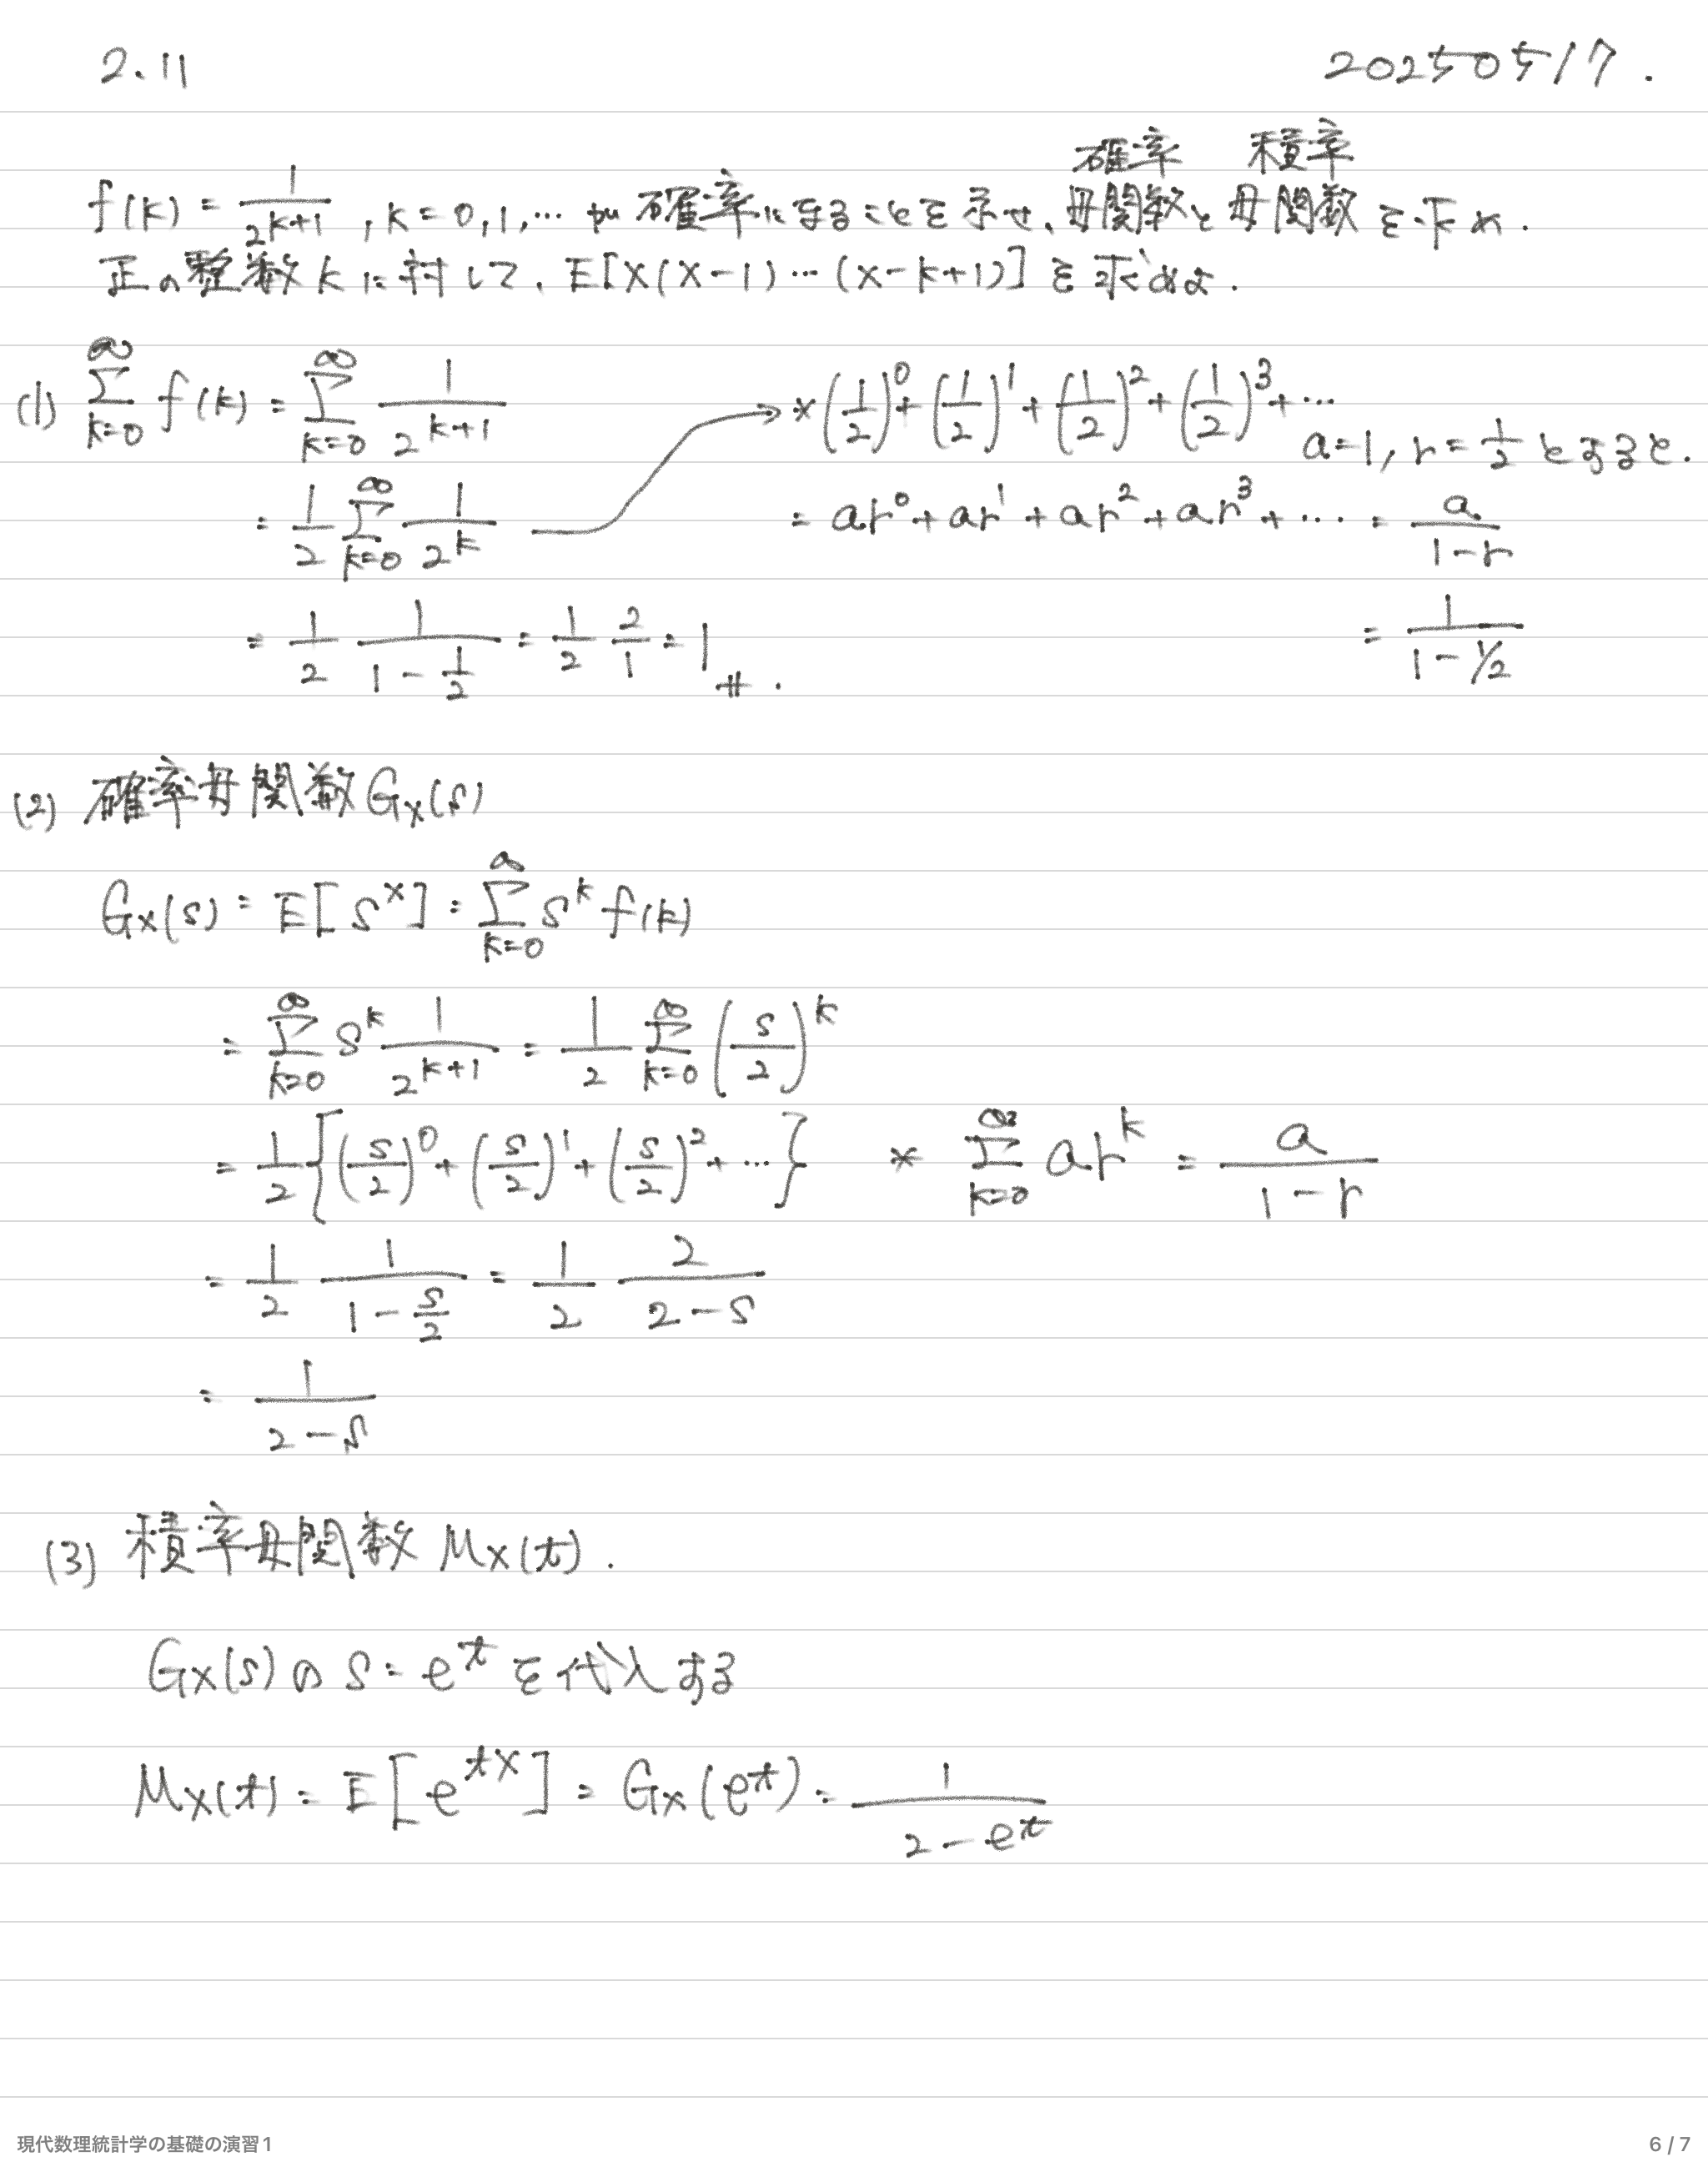 2.11 20250517.
確率 積率
f(k) = 1/2^{k+1}, k=0,1,… が確率になることを示せ、母関数と母関数を求め.
正の整数kに対して、E[X(X-1)…(X-k+1)]を求めよ.
(1) ∑_{k=0}^{∞} f(k) = ∑_{k=0}^{∞} 1/2^{k+1} → *(1/2)^0+(1/2)^1+(1/2)^2+(1/2)^3+… a=1, r=1/2とすると.
= 1/2 ∑_{k=0}^{∞} 1/2^k = ar^0+ar^1+ar^2+ar^3+…. = a/(1-r)
= 1/2 1/(1-1/2) = 1/2 2/1 = 1 #. = 1/(1-1/2)
(2) 確率母関数 G_X(s)
G_X(s) = E[s^X] = ∑_{k=0}^{∞} s^k f(k)
= ∑_{k=0}^{∞} s^k 1/2^{k+1} = 1/2 ∑_{k=0}^{∞} (s/2)^k
= 1/2 {(s/2)^0+(s/2)^1+(s/2)^2+…} * ∑_{k=0}^{∞} ar^k = a/(1-r)
= 1/2 1/(1-s/2) = 1/2 2/(2-s)
= 1/(2-s)
(3) 積率母関数 M_X(t).
G_X(s)の s=e^t を代入する
M_X(t) = E[e^{tX}] = G_X(e^t) = 1/(2-e^t)
現代数理統計学の基礎の演習1 6 / 7